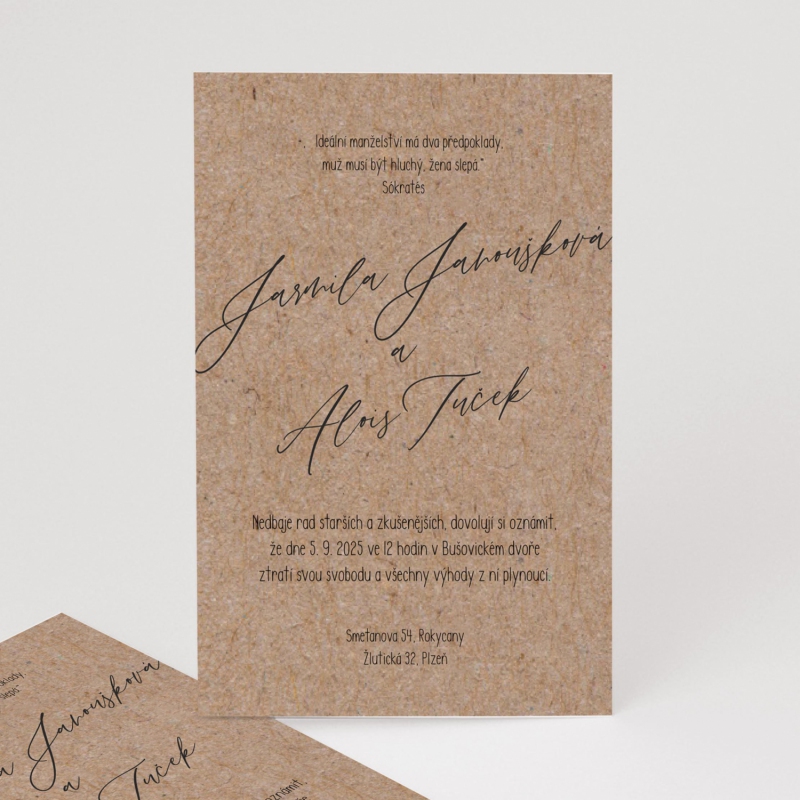 „Ideální manželství má dva předpoklady,
muž musí být hluchý, žena slepá."
Sókratés
Jarmila Janoušková
a
Alois Tuček
Nedbaje rad starších a zkušenějších, dovolují si oznámit,
že dne 5. 9. 2025 ve 12 hodin v Bušovickém dvoře
ztratí svou svobodu a všechny výhody z ní plynoucí.
Smetanova 54, Rokycany
Žlutická 32, Plzeň
slepá"
Janoušková
a
Tuček
oznámit,